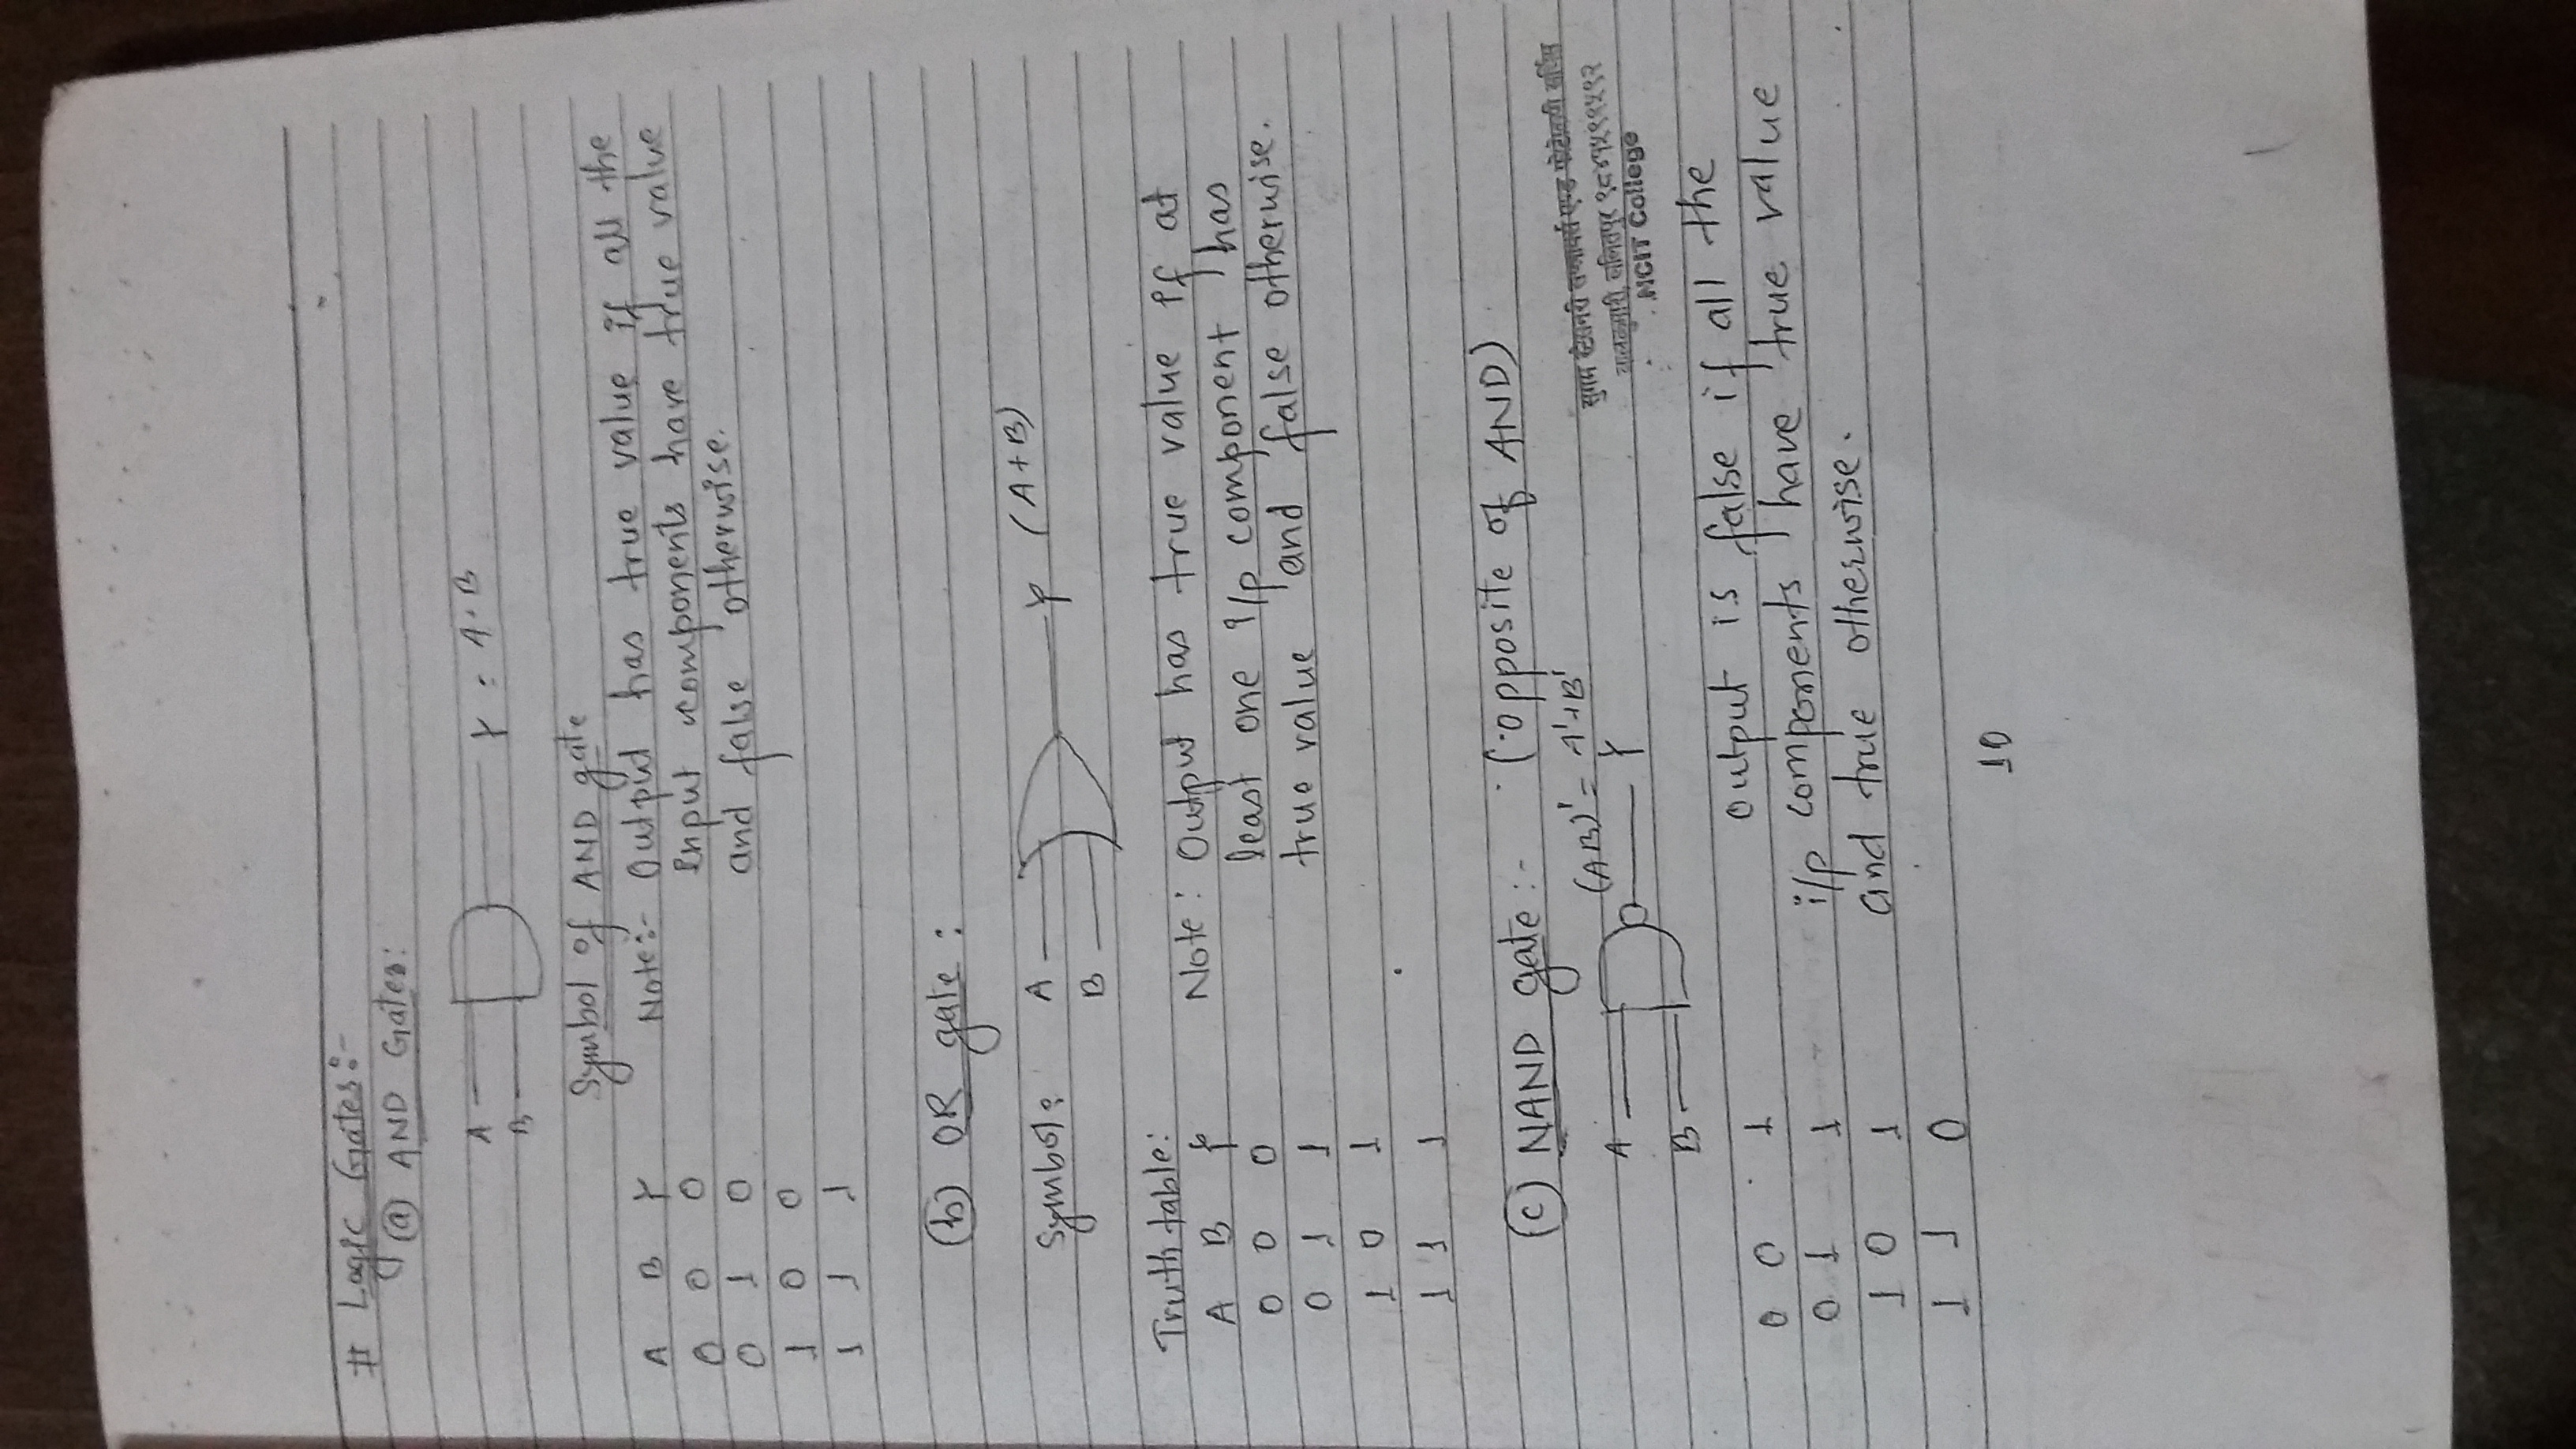 # Logic Gates:-
(a) AND Gates:
A
B
Y = A.B
Symbol of AND gate
A B Y
0 0 0
0 1 0
1 0 0
1 1 1
Note:- Output has true value if all the
input components have true value
and false otherwise.
(b) OR gate:
Symbol: A
B
Y (A+B)
Truth table:
A B Y
0 0 0
0 1 1
1 0 1
1 1 1
Note: Output has true value if at
least one i/p component has
true value and false otherwise.
(c) NAND gate:- (opposite of AND)
A
B
(AB)' = A'+B'
Y
सुगम स्टेशनरी सप्लायर्स एण्ड फोटोकपी सर्भिस
बालकुमारी, ललितपुर
NCIT College
0 0 1
0 1 1
1 0 1
1 1 0
output is false if all the
i/p components have true value
and true otherwise.
10